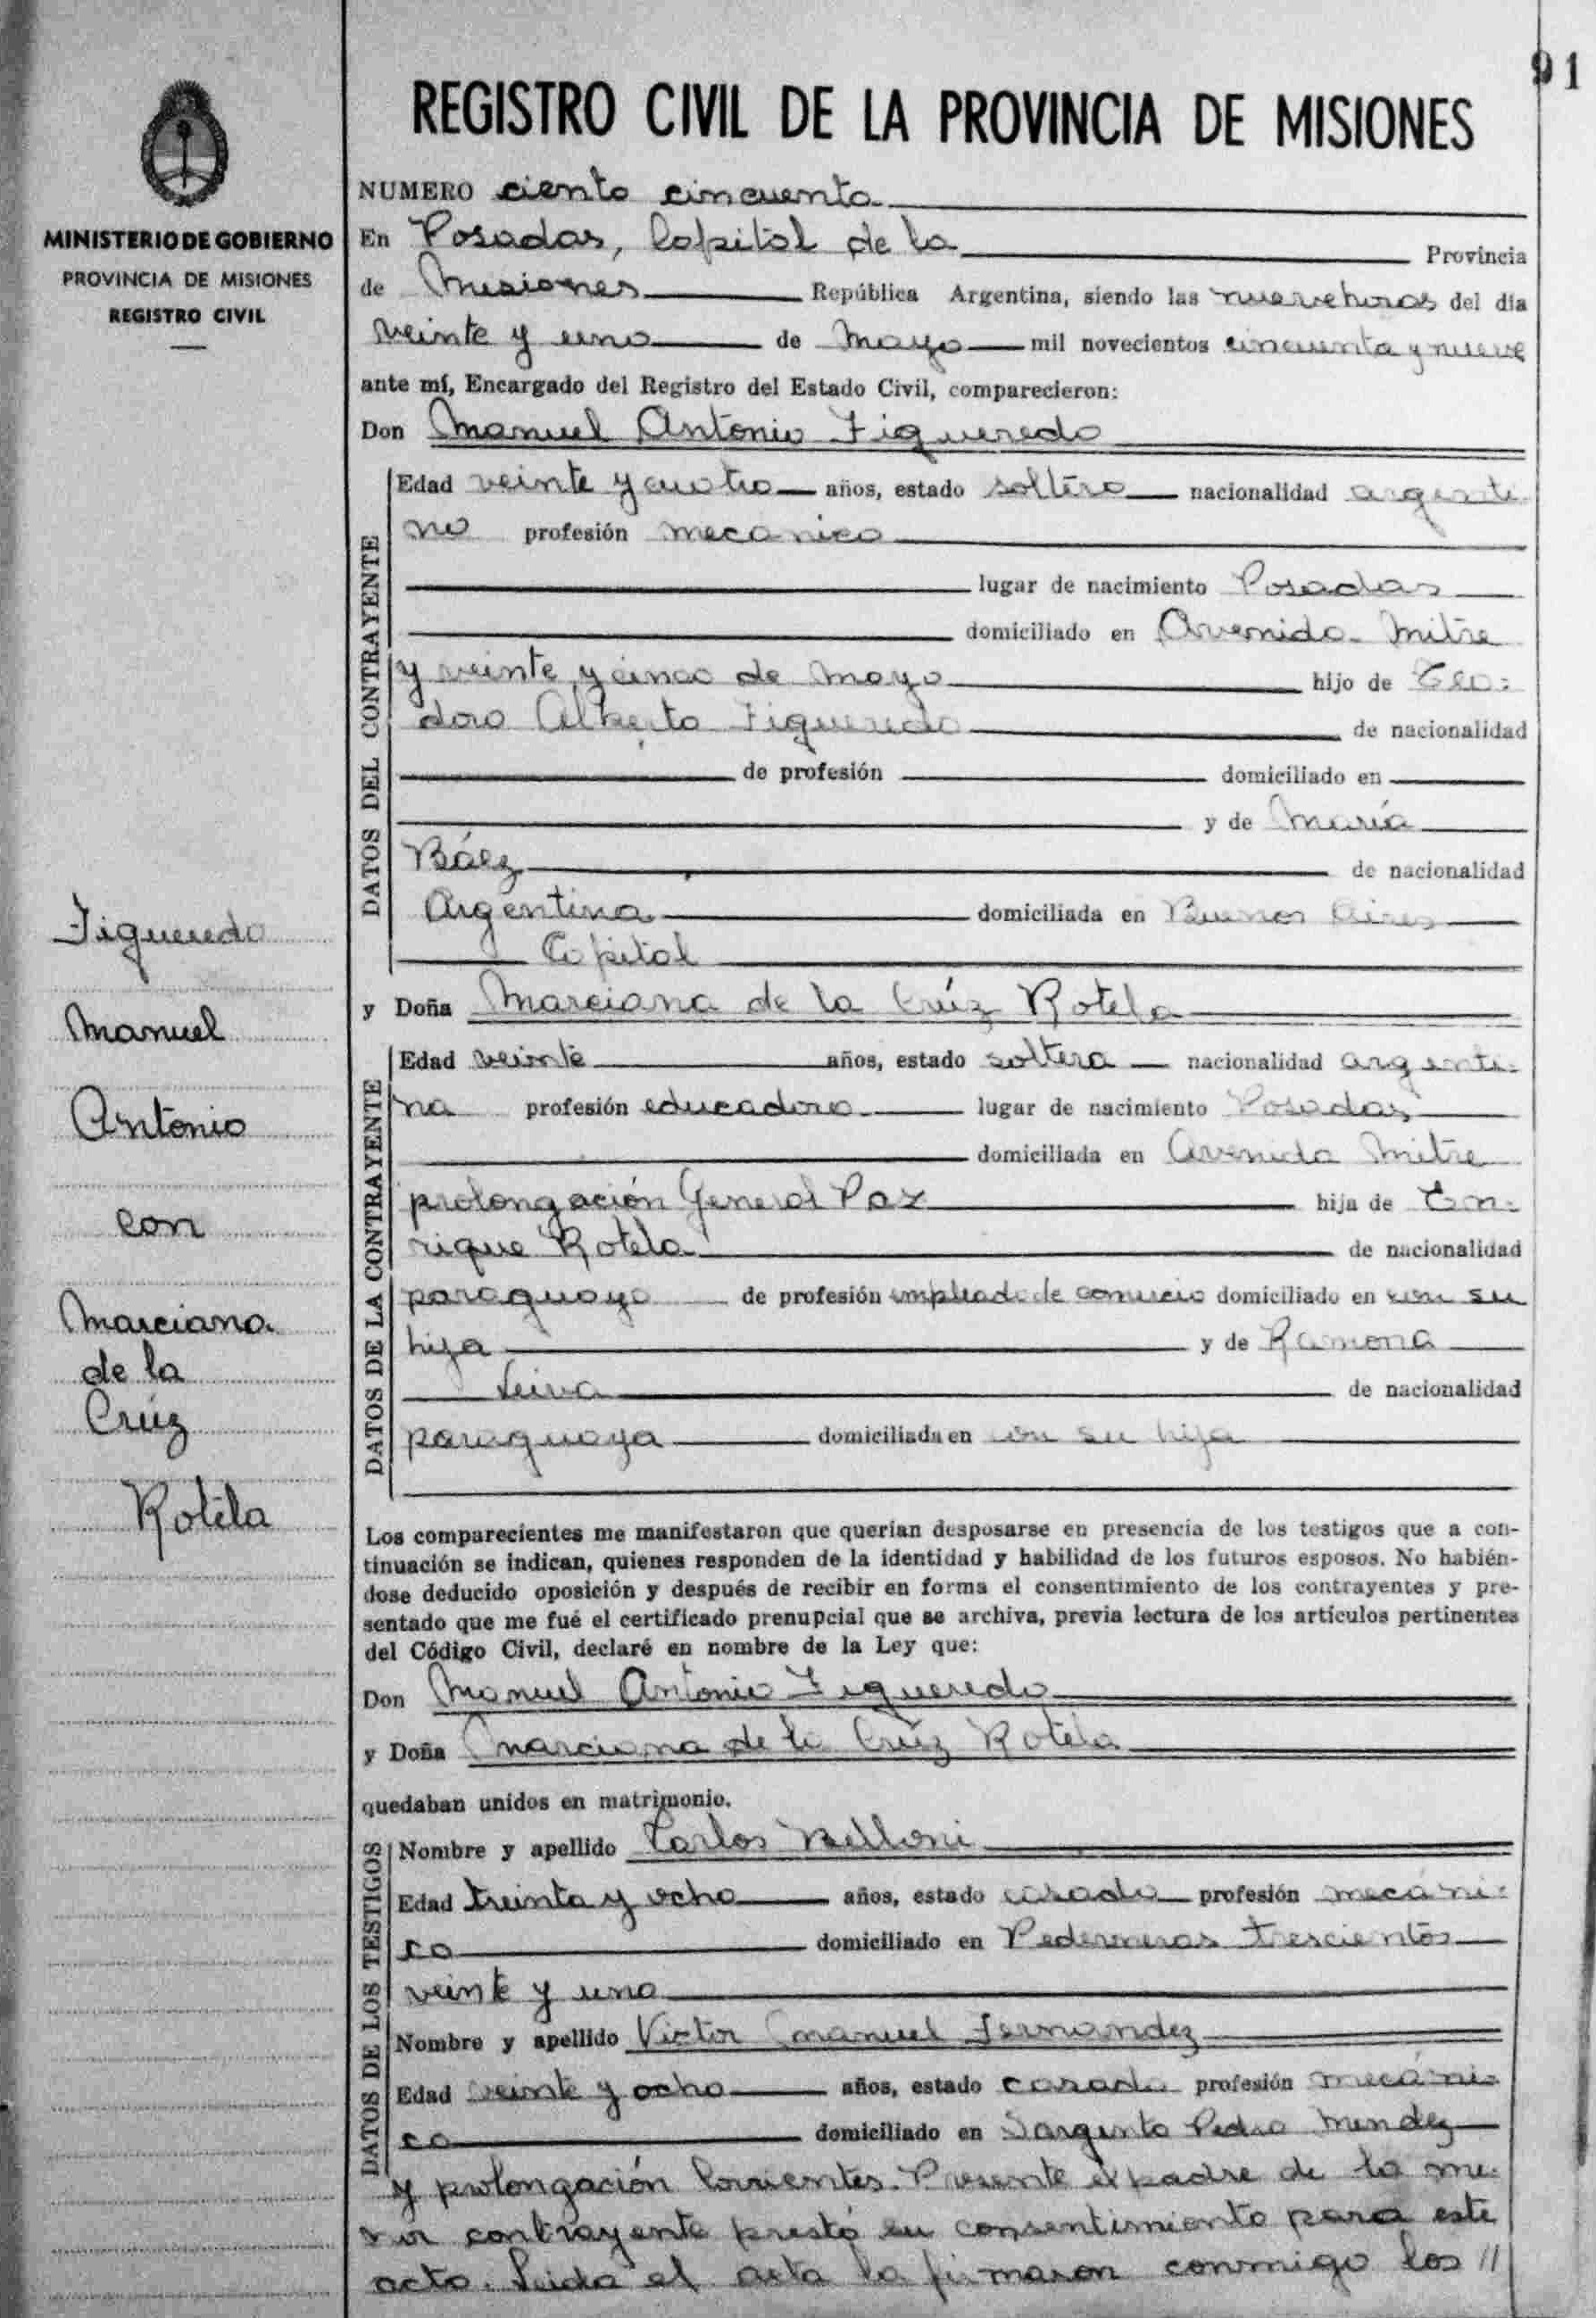 91
REGISTRO CIVIL DE LA PROVINCIA DE MISIONES
MINISTERIO DE GOBIERNO
PROVINCIA DE MISIONES
REGISTRO CIVIL
Figueredo
Manuel
Antonio
con
Marciana
de la
Crúz
Rotela
NUMERO ciento cincuenta
En Posadas, Capital de la Provincia
de Misiones República Argentina, siendo las nueve horas del día
veinte y uno de Mayo mil novecientos cincuenta y nueve
ante mí, Encargado del Registro del Estado Civil, comparecieron:
Don Manuel Antonio Figueredo
DATOS DEL CONTRAYENTE
Edad veinte y cuatro años, estado soltero nacionalidad argenti-
no profesión mecanico
lugar de nacimiento Posadas
domiciliado en Avenida Mitre
y veinte y cinco de Mayo hijo de Teo-
doro Alberto Figueredo de nacionalidad
de profesión domiciliado en
y de María
Báez de nacionalidad
Argentina domiciliada en Buenos Aires
Capital
y Doña Marciana de la Crúz Rotela
DATOS DE LA CONTRAYENTE
Edad veinte años, estado soltera nacionalidad argenti-
na profesión educadora lugar de nacimiento Posadas
domiciliada en Avenida Mitre
prolongación General Paz hija de En-
rique Rotela de nacionalidad
paraguaya de profesión empleado de comercio domiciliado en con su
hija y de Ramona
Leiva de nacionalidad
paraguaya domiciliada en con su hija
Los comparecientes me manifestaron que querían desposarse en presencia de los testigos que a con-
tinuación se indican, quienes responden de la identidad y habilidad de los futuros esposos. No habién-
dose deducido oposición y después de recibir en forma el consentimiento de los contrayentes y pre-
sentado que me fué el certificado prenupcial que se archiva, previa lectura de los artículos pertinentes
del Código Civil, declaré en nombre de la Ley que:
Don Manuel Antonio Figueredo
y Doña Marciana de la Crúz Rotela
quedaban unidos en matrimonio.
DATOS DE LOS TESTIGOS
Nombre y apellido Carlos Belloni
Edad treinta y ocho años, estado casado profesión mecáni-
co domiciliado en Pederneras trescientos
veinte y uno
Nombre y apellido Victor Manuel Fernandez
Edad veinte y ocho años, estado casado profesión mecáni-
co domiciliado en Sargento Pedro Mendez
y prolongación Corrientes. Presente el padre de la me-
nor contrayente prestó su consentimiento para este
acto. Leida el acta la firmaron conmigo los //